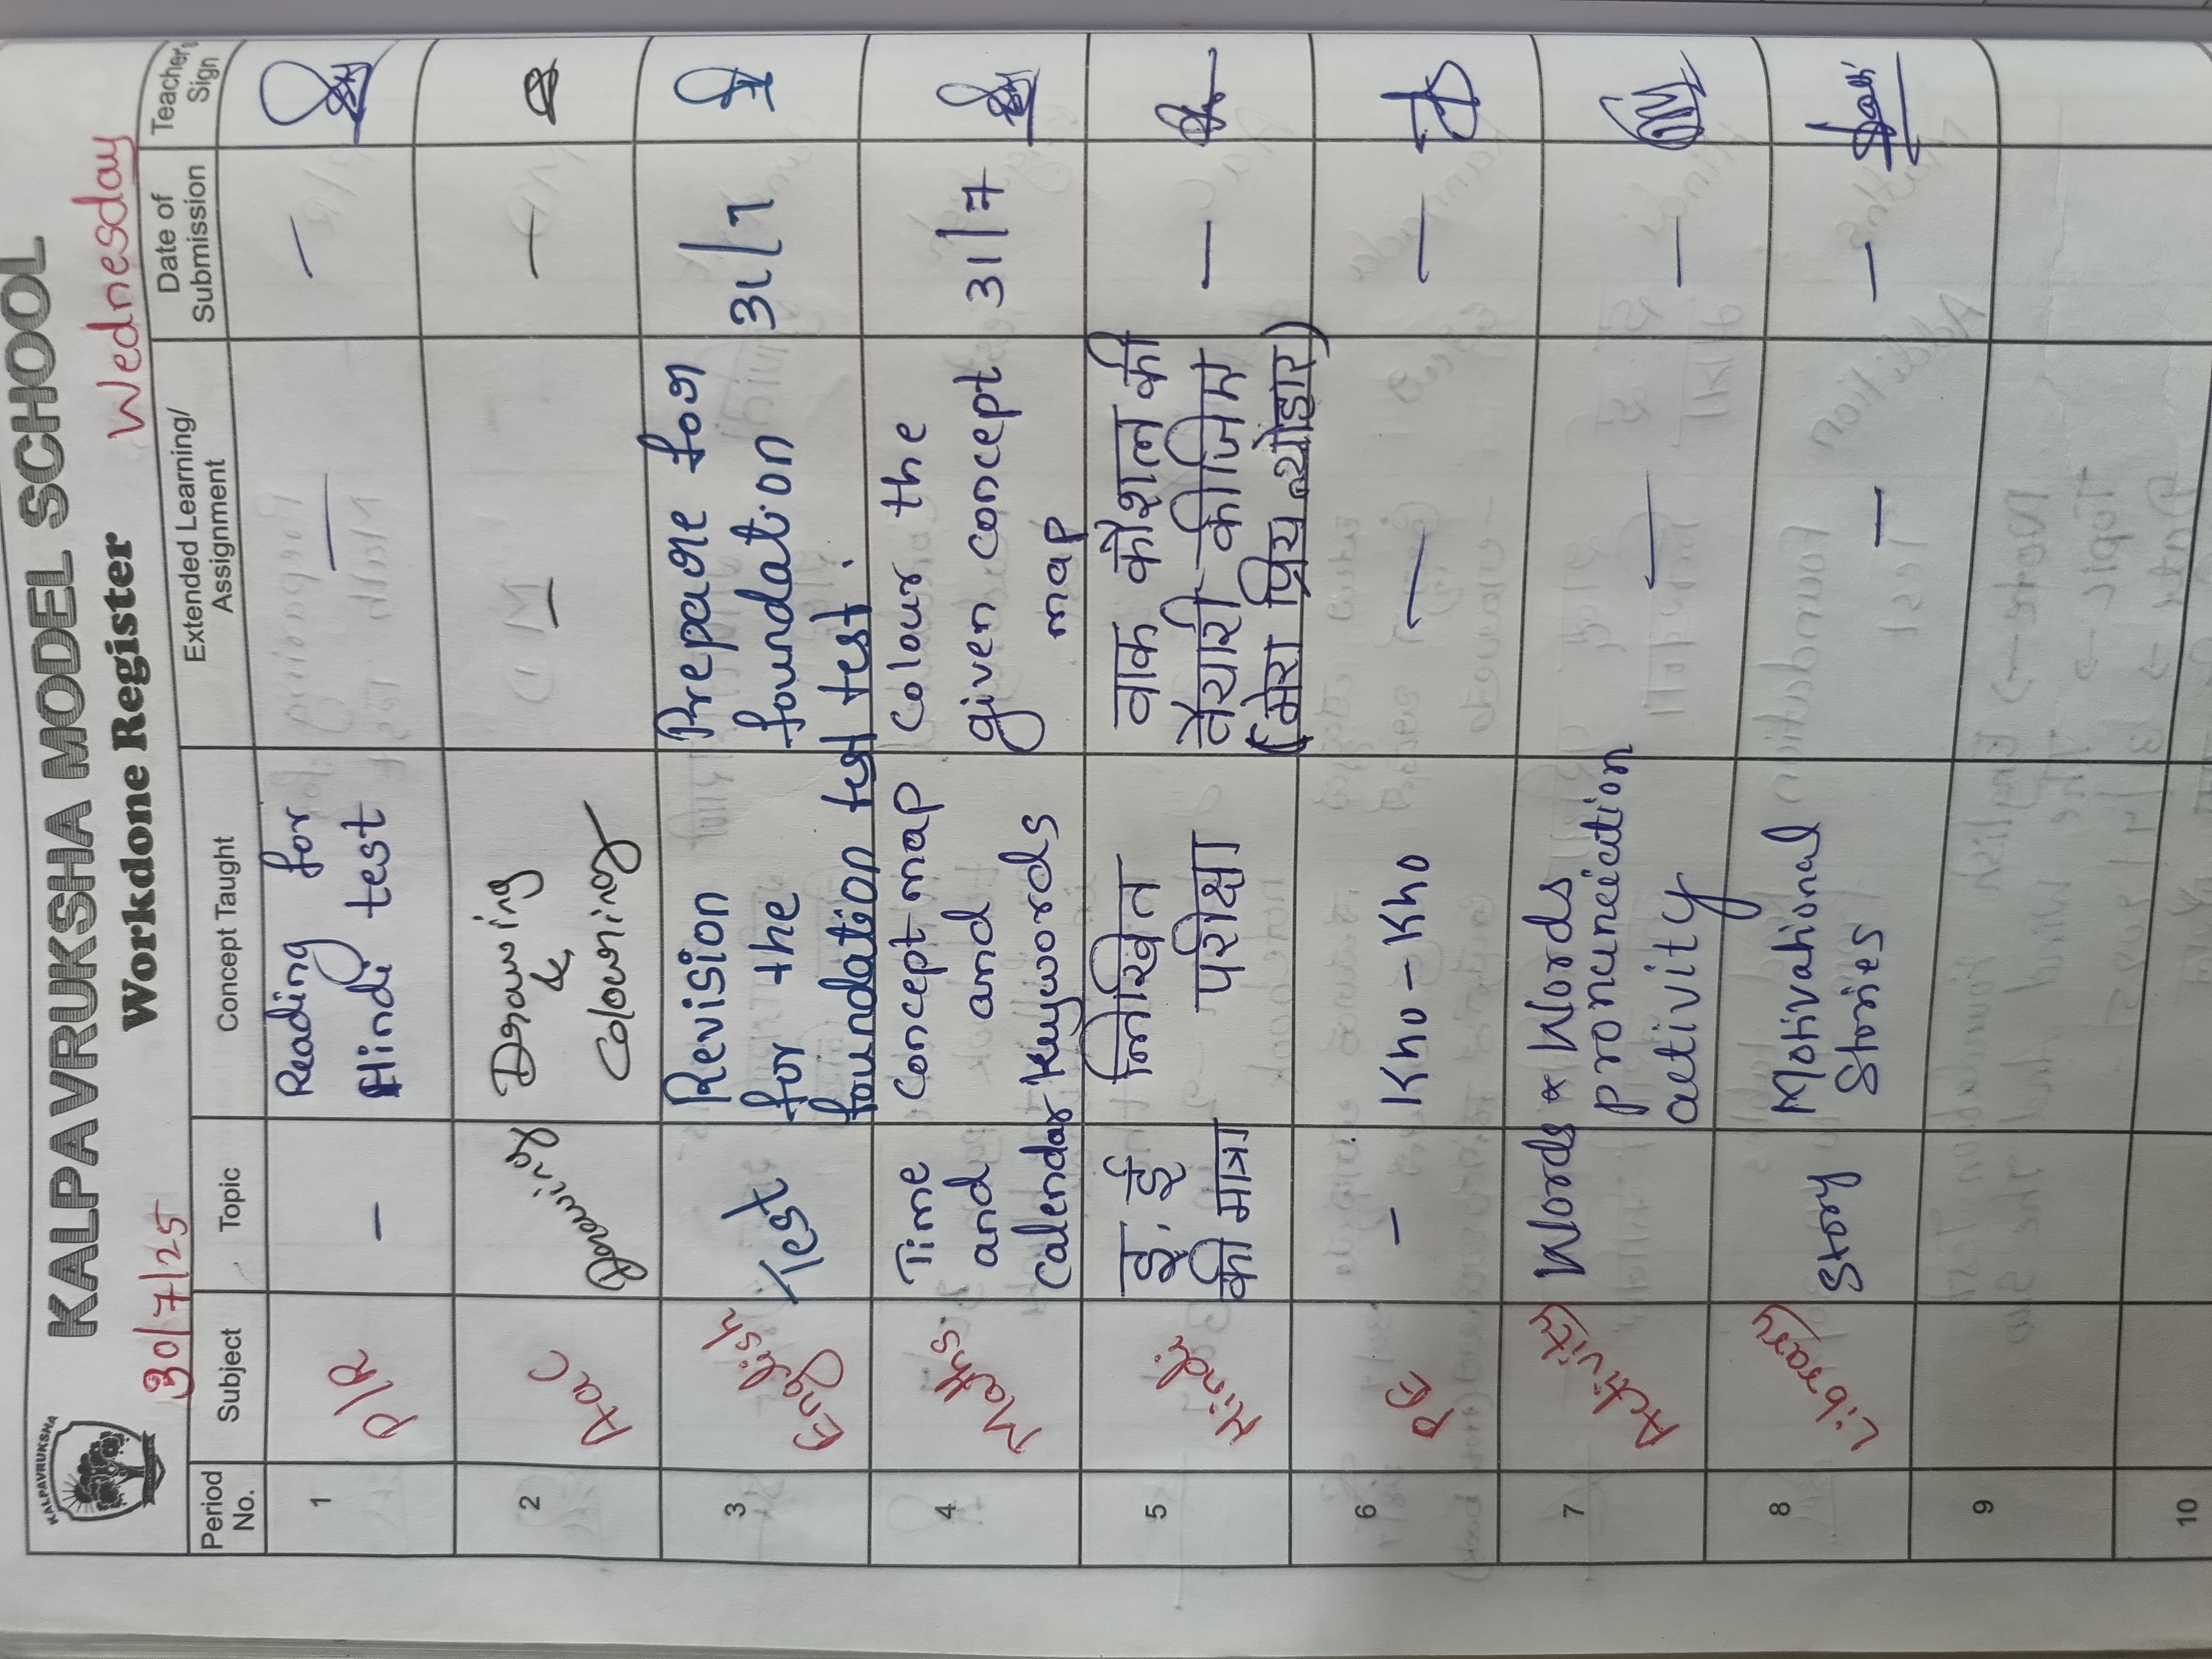 KALPAVRUKSHA
KALPAVRUKSHA MODEL SCHOOL
Workdone Register
30/7/25 Wednesday
Period No. Subject Topic Concept Taught Extended Learning/ Assignment Date of Submission Teacher's Sign
1 P/R - Reading for Hindi test — —
2 A&C Drawing Drawing & Colouring — —
3 English Test Revision for the foundation test Prepare for foundation test. 31/7
4 Maths Time and Calendar Concept map and Keywords Colour the given concept map 31/7
5 Hindi इ, ई की मात्रा लिखित परीक्षा वाक कौशल की तैयारी कीजिए (मेरा प्रिय त्योहार) —
6 PE - Kho-Kho — —
7 Activity Words & Words pronunciation activity — —
8 Library Story Motivational Stories — —
9
10